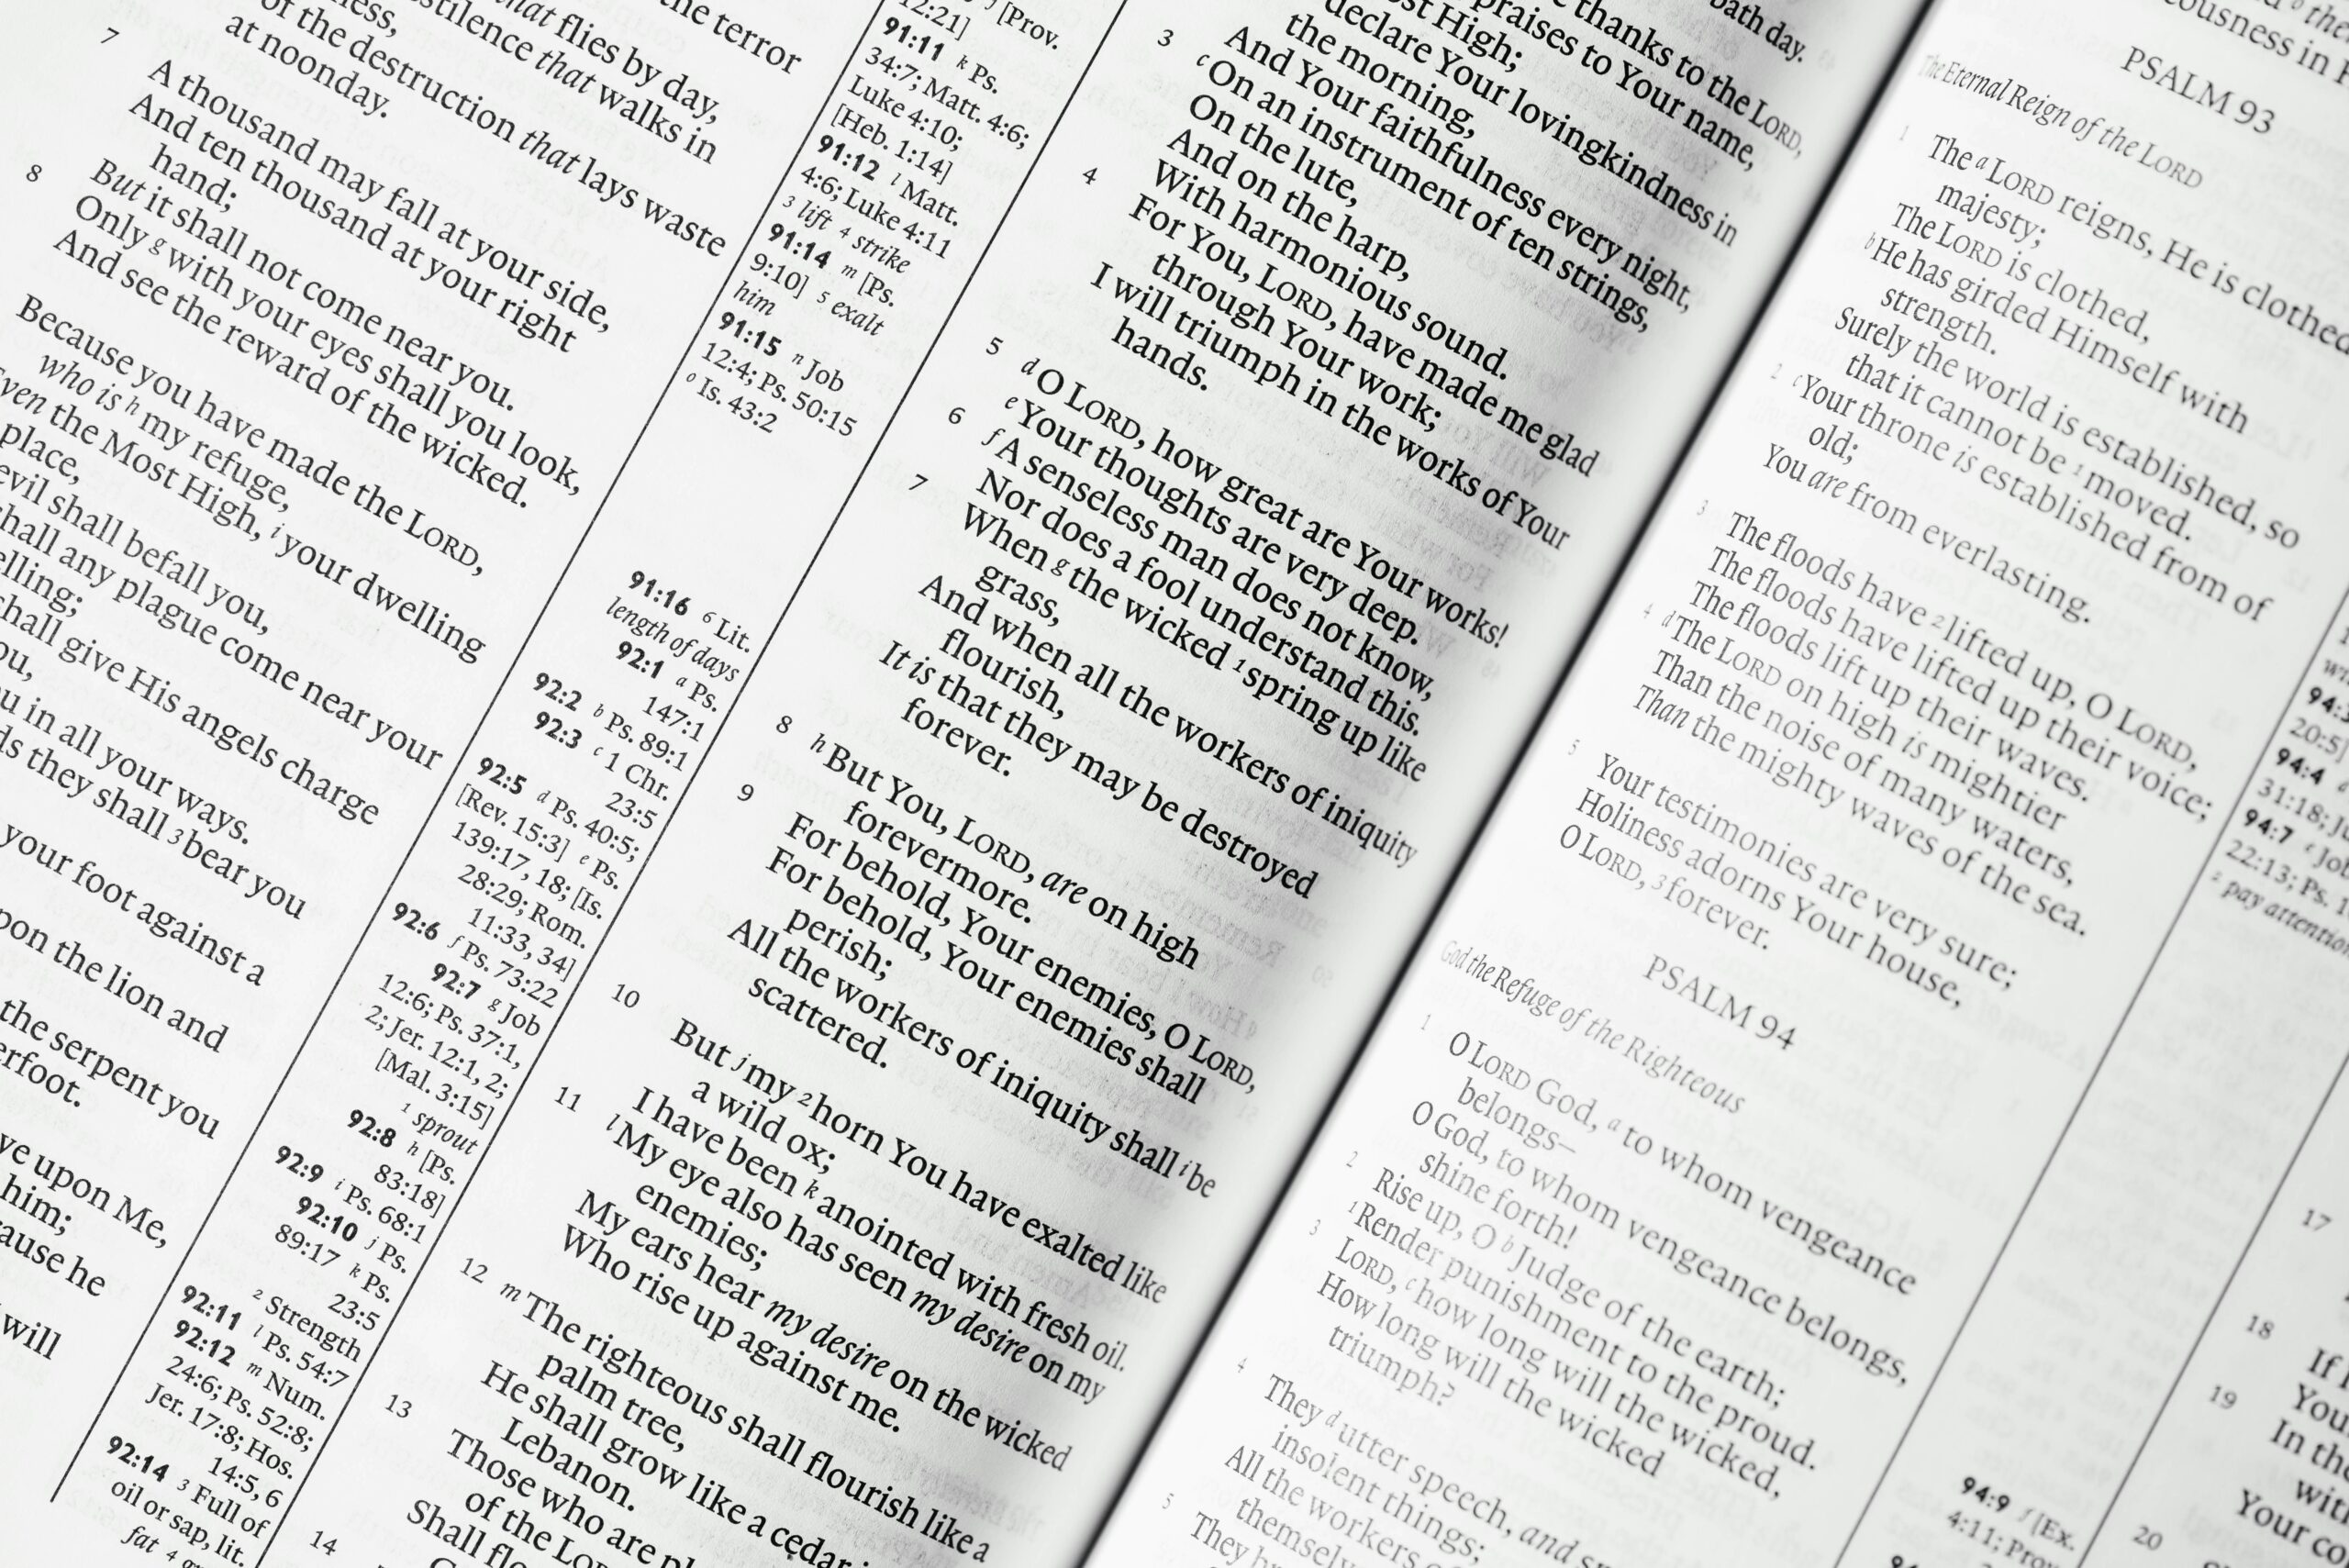 the terror
that flies by day,
that walks in
of the destruction that lays waste
at noonday.
7
A thousand may fall at your side,
And ten thousand at your right
hand;
8
But it shall not come near you.
Only g with your eyes shall you look,
And see the reward of the wicked.
Because you have made the LORD,
who is h my refuge,
Even the Most High, i your dwelling
place,
evil shall befall you,
shall any plague come near your
shall give His angels charge
in all your ways.
they shall 3 bear you
your foot against a
the lion and
the serpent you
upon Me,
him;
he
will
12:21] j [Prov.
91:11 k Ps.
34:7; Matt. 4:6;
Luke 4:10;
[Heb. 1:14]
91:12 l Matt.
4:6; Luke 4:11
3 lift 4 strike
91:14 m [Ps.
9:10] 5 exalt
him
91:15 n Job
12:4; Ps. 50:15
o Is. 43:2
91:16 6 Lit.
length of days
92:1 a Ps.
147:1
92:2 b Ps. 89:1
92:3 c 1 Chr.
23:5
92:5 d Ps. 40:5;
[Rev. 15:3] e Ps.
139:17, 18; [Is.
28:29; Rom.
11:33, 34]
92:6 f Ps. 73:22
92:7 g Job
12:6; Ps. 37:1,
2; Jer. 12:1, 2;
[Mal. 3:15]
1 sprout
92:8 h [Ps.
83:18]
92:9 i Ps. 68:1
92:10 j Ps.
89:17 k Ps.
23:5
2 Strength
92:11 l Ps. 54:7
92:12 m Num.
24:6; Ps. 52:8;
Jer. 17:8; Hos.
14:5, 6
92:14 3 Full of
oil or sap, lit.
fat 4
day.
thanks to the LORD,
praises to Your name,
High;
declare Your lovingkindness in
the morning,
And Your faithfulness every night,
3 c On an instrument of ten strings,
On the lute,
And on the harp,
With harmonious sound.
4 For You, LORD, have made me glad
through Your work;
I will triumph in the works of Your
hands.
5 d O LORD, how great are Your works!
e Your thoughts are very deep.
6 f A senseless man does not know,
Nor does a fool understand this.
7 When g the wicked 1 spring up like
grass,
And when all the workers of iniquity
flourish,
It is that they may be destroyed
forever.
8 h But You, LORD, are on high
forevermore.
9 For behold, Your enemies, O LORD,
For behold, Your enemies shall
perish;
All the workers of iniquity shall i be
scattered.
10 But j my 2 horn You have exalted like
a wild ox;
I have been k anointed with fresh oil.
11 l My eye also has seen my desire on my
enemies;
My ears hear my desire on the wicked
Who rise up against me.
12 m The righteous shall flourish like a
palm tree,
He shall grow like a cedar
Lebanon.
13 Those who are
of the LORD
Shall
14
in
PSALM 93
The Eternal Reign of the LORD
1 The a LORD reigns, He is clothed
majesty;
The LORD is clothed,
b He has girded Himself with
strength.
Surely the world is established, so
that it cannot be 1 moved.
2 c Your throne is established from of
old;
You are from everlasting.
3 The floods have 2 lifted up, O LORD,
The floods have lifted up their voice;
The floods lift up their waves.
4 d The LORD on high is mightier
Than the noise of many waters,
Than the mighty waves of the sea.
5 Your testimonies are very sure;
Holiness adorns Your house,
O LORD, 3 forever.
PSALM 94
God the Refuge of the Righteous
1 O LORD God, a to whom vengeance
belongs—
O God, to whom vengeance belongs,
shine forth!
2 Rise up, O b Judge of the earth;
1 Render punishment to the proud.
3 LORD, c how long will the wicked,
How long will the wicked
triumph?
4 They d utter speech, and
insolent things;
All the workers
5 They
20:5]
94:4 d
31:18;
94:7 e Job
22:13; Ps.
2 pay attention
94:9 f [Ex.
4:11; Prov.
17
18
If
19
You
In the
Your
20